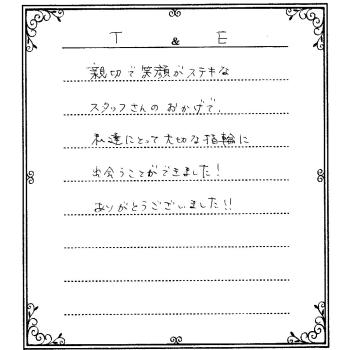 T & E
親切で笑顔がステキな
スタッフさんのおかげで、
私達にとって大切な指輪に
出会うことができました!
ありがとうございました!!